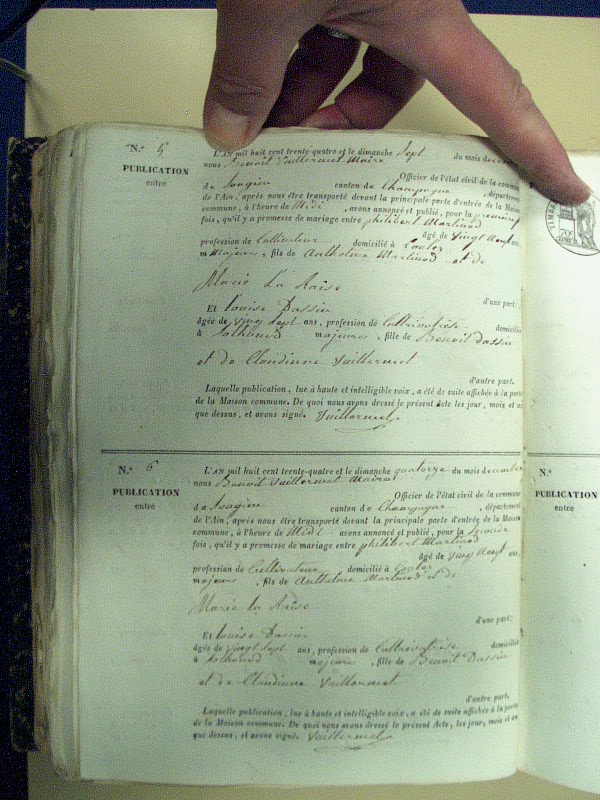 N.º 5
PUBLICATION
entre
L'AN mil huit cent trente-quatre et le dimanche Sept du mois de
nous Benoit Vuillermet Maire
Officier de l'état civil de la commune
de Songieu canton de Champagne , département
de l'Ain, après nous être transporté devant la principale porte d'entrée de la Maison
commune, à l'heure de Midi , avons annoncé et publié, pour la première
fois, qu'il y a promesse de mariage entre philibert Martinod
âgé de Vingt neuf ans,
profession de Cultivateur domicilié à
majeur , fils de Anthelme Martinod et de
Marie La Raise
d'une part:
Et Louise Dassin
âgée de Vingt Sept ans, profession de Cultivatrice domiciliée
à Sothonod majeure , fille de Benoit Dassin
et de Claudienne Vuillermet
d'autre part.
Laquelle publication, lue à haute et intelligible voix, a été de suite affichée à la porte
de la Maison commune. De quoi nous avons dressé le présent Acte les jour, mois et an
que dessus, et avons signé. Vuillermet
N.º 6
PUBLICATION
entre
L'AN mil huit cent trente-quatre et le dimanche quatorze du mois decembre
nous Benoit Vuillermet Maire
Officier de l'état civil de la commune
de Songieu canton de Champagne , département
de l'Ain, après nous être transporté devant la principale porte d'entrée de la Maison
commune, à l'heure de Midi avons annoncé et publié, pour la Seconde
fois, qu'il y a promesse de mariage entre philibert Martinod
âgé de Vingt neuf ans,
profession de Cultivateur domicilié à
majeur , fils de Anthelme Martinod et de
Marie la Raise
d'une part:
Et Louise Dassin
âgée de Vingt Sept ans, profession de Cultivatrice domiciliée
à Sothonod majeure , fille de Benoit Dassin
et de Claudienne Vuillermet
d'autre part.
Laquelle publication, lue à haute et intelligible voix, a été de suite affichée à la porte
de la Maison commune. De quoi nous avons dressé le présent Acte, les jour, mois et an
que dessus, et avons signé. Vuillermet
N.º
PUBLICATION
entre